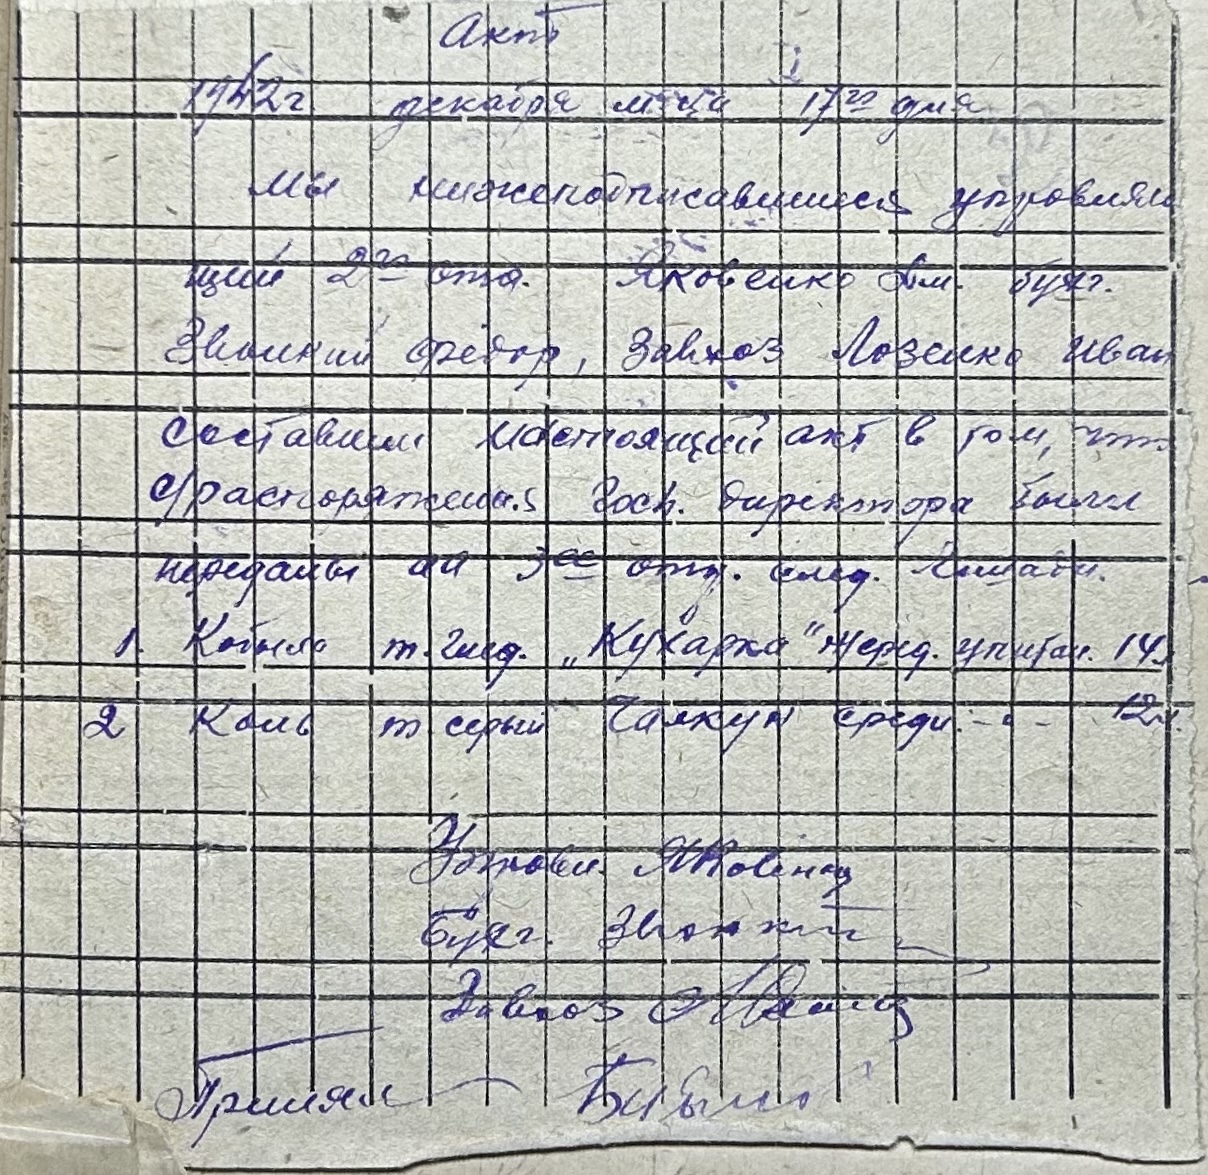 Акт
1942г декабря м-ца 17го дня
Мы нижеподписавшиеся управляю
щий 2го отд. Яковенко Ам. бухг.
Звонкий Федор, Завхоз Лозенко Иван
составили настоящий акт в том, что
с/распоряжения Госп. директора были
переданы на 3ее отд. след. лошади.
1. Кобыла т. гнед. „Кухарка" серед. упитан. 14л
2 Конь т серый Чалкун средн. -"- 12л.
Управл. Яковенко
Бухг. Звонкий
Завхоз
Принял